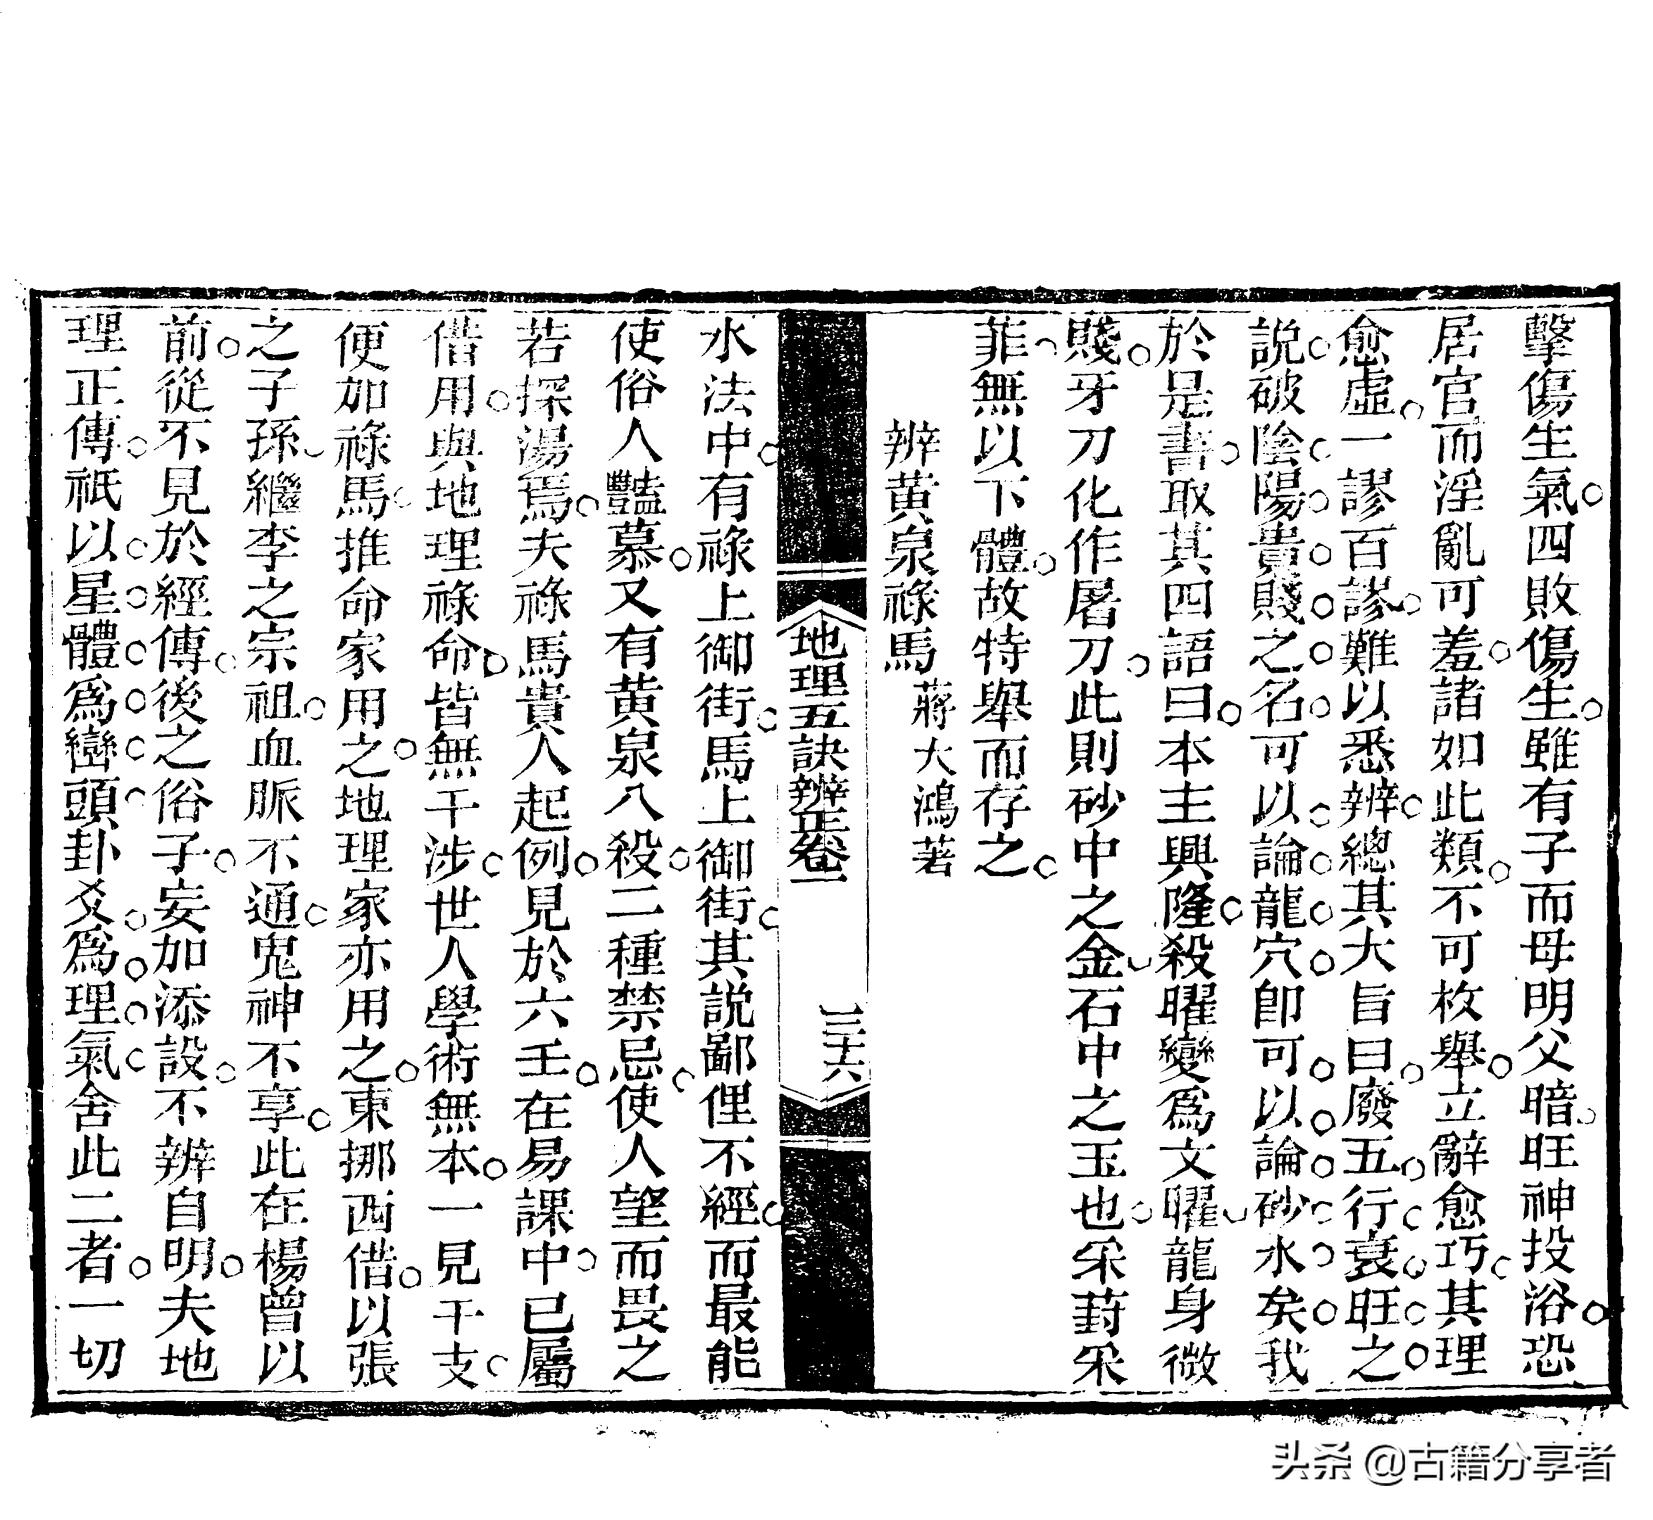 擊傷生氣四敗傷生雖有子而母明父暗旺神投浴恐
居官而淫亂可羞諸如此類不可枚舉立辭愈巧其理
愈虛一謬百謬難以悉辨總其大旨曰廢五行衰旺之
說破陰陽貴賤之名可以論龍穴卽可以論砂水矣我
於是書取其四語曰本主興隆殺曜變爲文曜龍身微
賤牙刀化作屠刀此則砂中之金石中之玉也采葑采
菲無以下體故特舉而存之
辨黃泉祿馬 蔣大鴻著
地理五訣辨正卷一 三十六
水法中有祿上御街馬上御街其說鄙俚不經而最能
使俗人豔慕又有黃泉八殺二種禁忌使人望而畏之
若探湯焉夫祿馬貴人起例見於六壬在易課中已屬
借用與地理祿命皆無干涉世人學術無本一見干支
便加祿馬推命家用之地理家亦用之東挪西借以張
之子孫繼李之宗祖血脈不通鬼神不享此在楊曾以
前從不見於經傳後之俗子妄加添設不辨自明夫地
理正傳祇以星體爲巒頭卦爻爲理氣舍此二者一切
头条 @古籍分享者